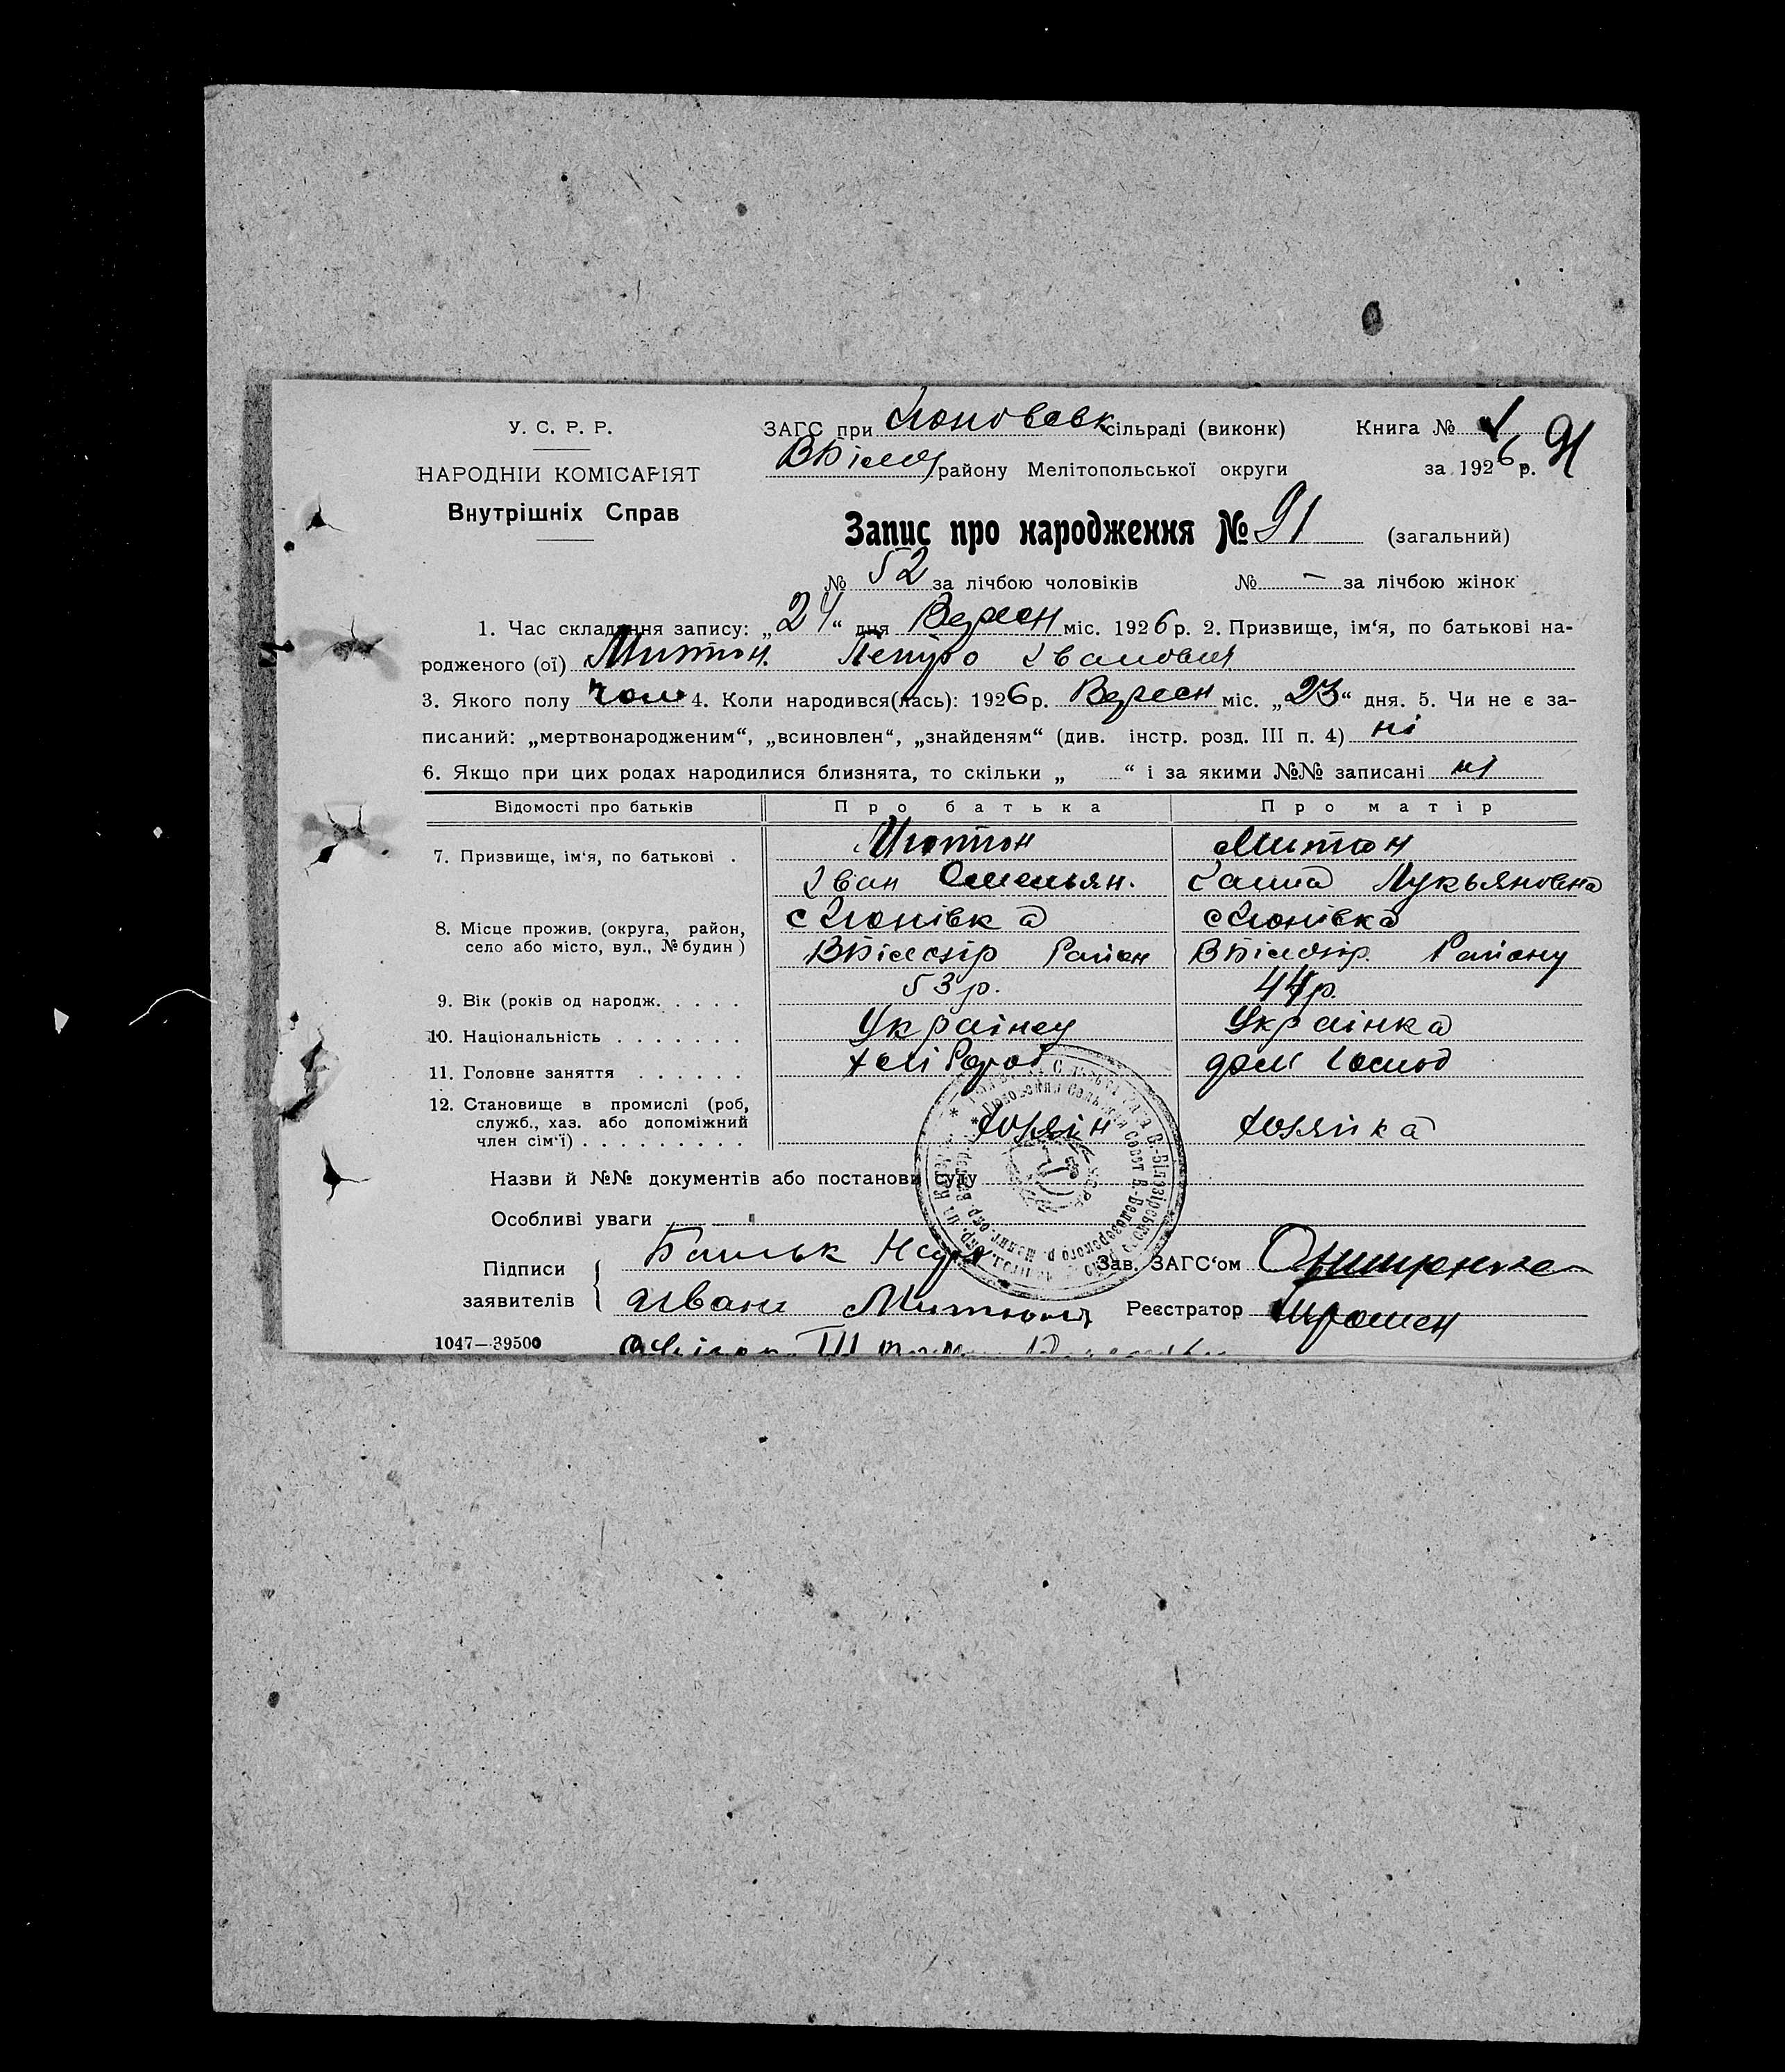 У. С. Р. Р.
НАРОДНІЙ КОМІСАРІЯТ
Внутрішніх Справ
ЗАГС при сільраді (виконк)
району Мелітопольської округи
Книга № 1
за 1926 р. 91
Запис про народження № 91 (загальний)
№ 52 за лічбою чоловіків № – за лічбою жінок
1. Час складання запису: „24“ дня Вересн міс. 1926 р. 2. Призвище, ім‘я, по батькові на-
родженого (ої) Митюн. Петро Іванович
3. Якого полу чол 4. Коли народився(лась): 1926 р. Вересн міс. „23“ дня. 5. Чи не є за-
писаний: „мертвонародженим“, „всиновлен“, „знайденям“ (див. інстр. розд. III п. 4) ні
6. Якщо при цих родах народилися близнята, то скільки „ “ і за якими №№ записані ні
Відомості про батьків Про батька Про матір
7. Призвище, ім‘я, по батькові . Митюн Митюн
Іван Омельян. Ганна Лукьяновна
8. Місце прожив. (округа, район,
село або місто, вул., № будин)
ВБілозір Район ВБілозір. Району
9. Вік (років од народж. . . . . 53 р. 44 р.
10. Національність . . . . . . . Українец Українка
11. Головне заняття . . . . . . Хліборо дом Господ
12. Становище в промислі (роб,
служб., хаз. або допоміжний
член сім‘ї) . . . . . . . . . Хозяін Хозяйка
Назви й №№ документів або постанови суду
Особливі уваги
Підписи
заявителів
Батьк
Иван
Зав. ЗАГС‘ом
Реєстратор
1047—39500